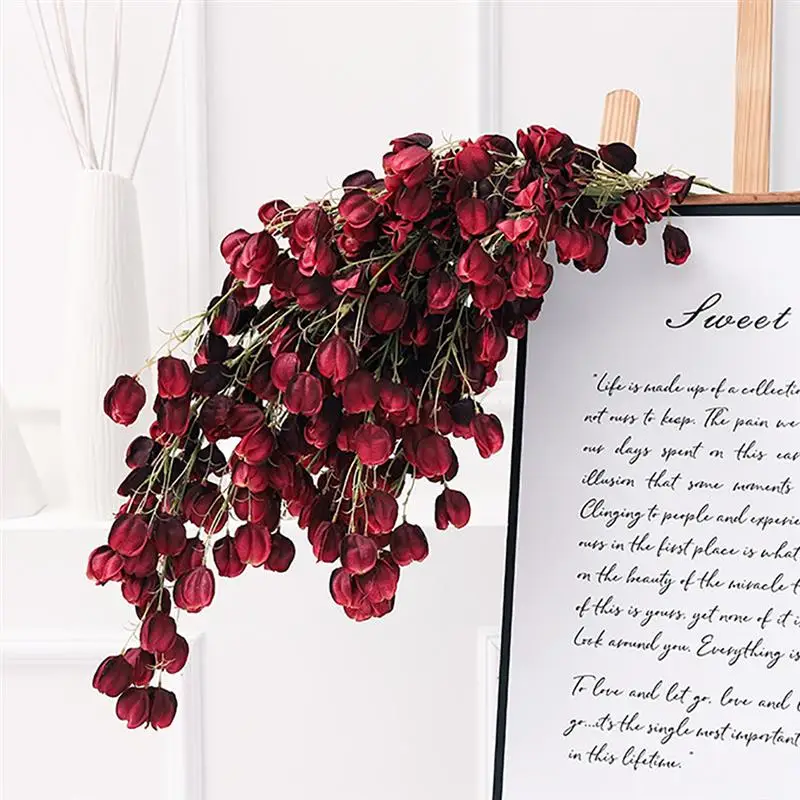 Sweet
"Life is made up of a collection
not ours to keep. The pain we
our days spent on this ear
illusion that some moments
Clinging to people and experie
ours in the first place is what
on the beauty of the miracle t
of this is yours, yet none of it is
Look around you. Everything is
To love and let go, love and l
go...it's the single most important
in this lifetime."